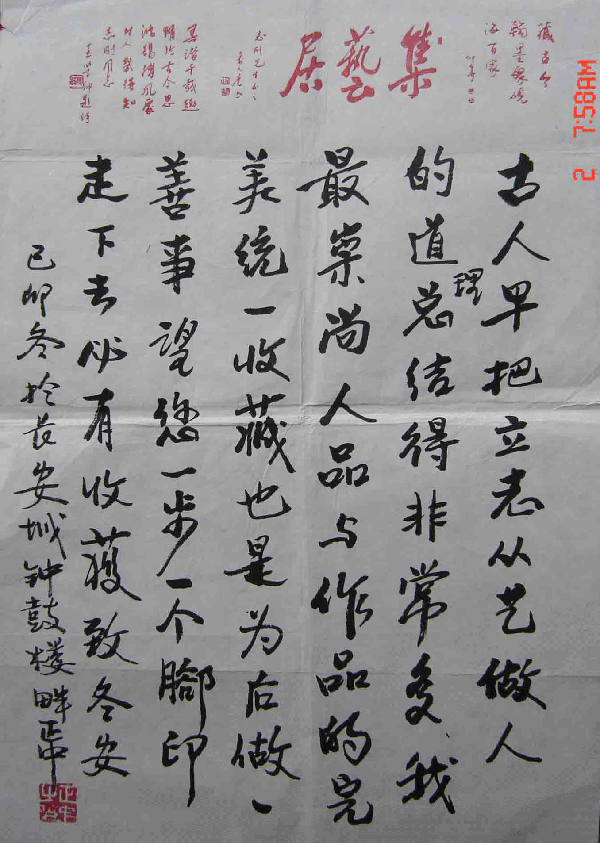 集藝居
藏古今
海百家
古人早把立志从艺做人
的道理总结得非常多，我
最崇尚人品与作品的完
美统一收藏也是为后做一
善事望您一步一个腳印
走下去必有收獲致冬安
己卯冬於长安城钟鼓楼畔
2 7:58AM